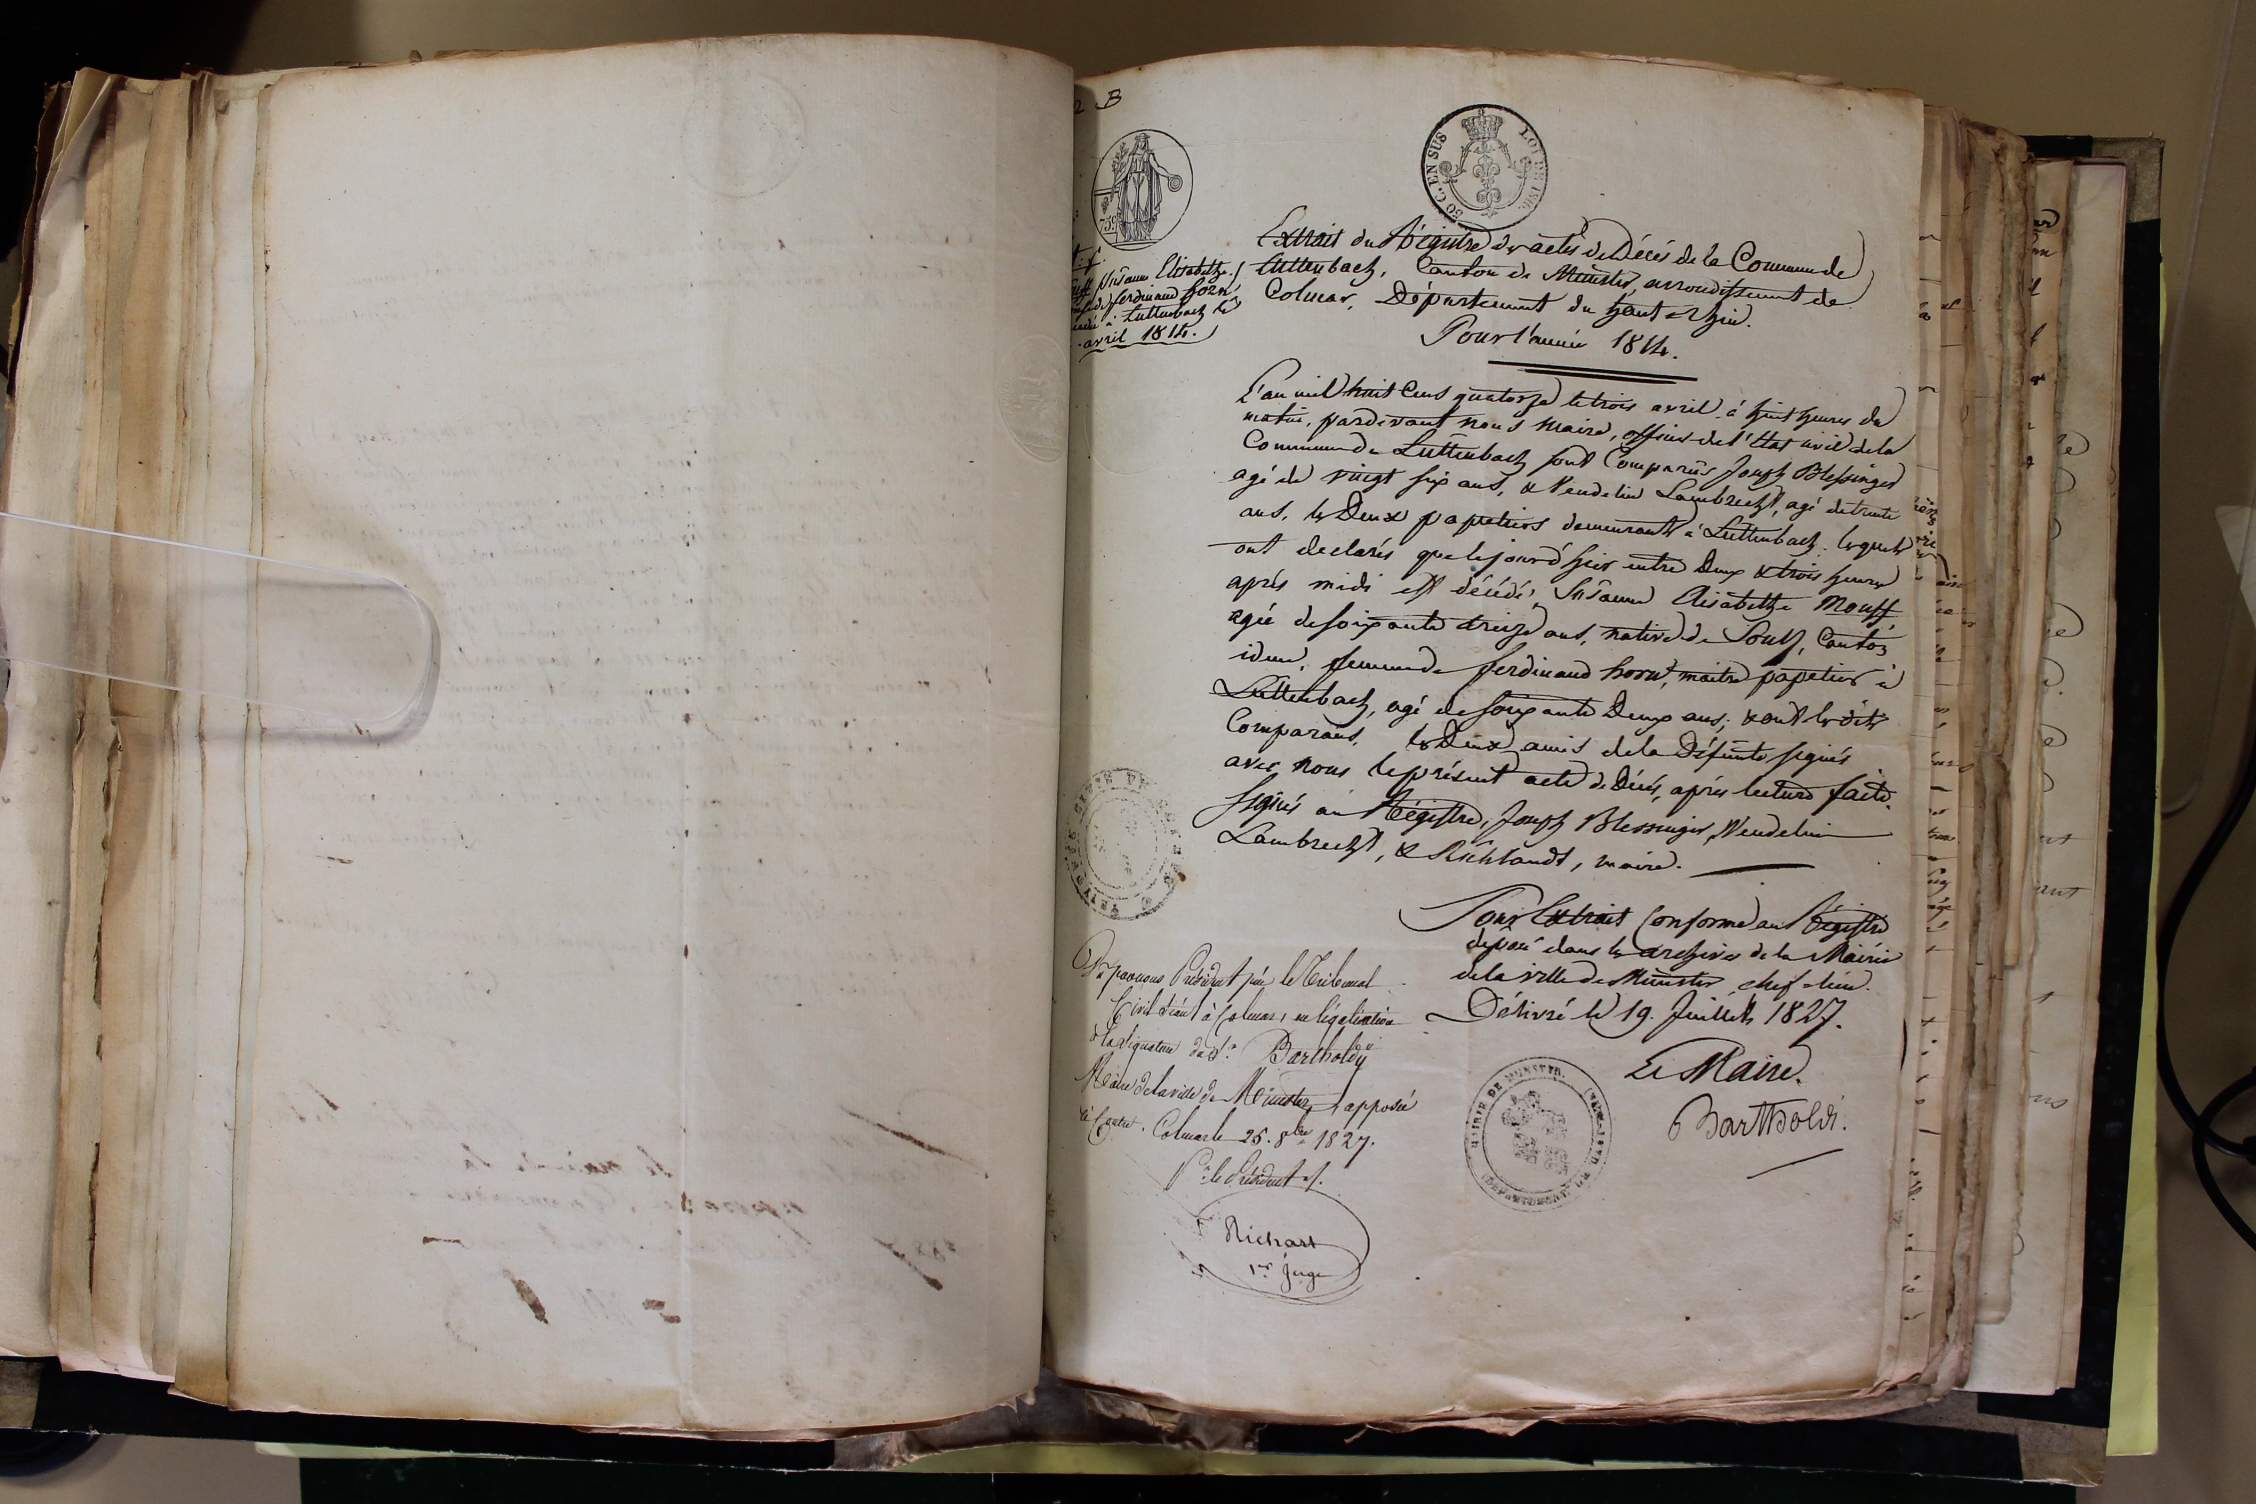 2 B
30 C. EN SUS
LOI DE 1816
75 c
Susanne Elisabethe
Ferdinand horn
à Luttenbach le
avril 1814.
Extrait du Régistre des actes de Décés de la Commune de
Luttenbach, Canton de Münster, arrondissement de
Colmar, Département du haut-Rhin.
Pour l'année 1814.
L'an mil huit Cens quatorze le trois avril à huit heures du
matin, pardevant nous Maire, officier de l'Etat civil de la
Commune de Luttenbach sont Comparûs Joseph Blessinger
agé de vingt six ans, & Vendelin Lambrecht, agé de trente
ans, les Deux papetiers demeurants à Luttenbach. lesquels
ont declarés que le jour d'hier entre Deux & trois heures
aprés midi est décédé, Susanne Elisabethe Mouff,
agée de soixante treize ans, native de Soulz, Canton
idem, femme de ferdinand horn, maitre papetier à
Luttenbach, agé de soixante Deux ans; & ont les dits
Comparans, les Deux amis de la Défunte signés
avec nous le présent acte de Décés, aprés lecture faite.
Signés au Régistre, Joseph Blessinger, Vendelin
Lambrecht, & Richlandt, maire.
Pour Extrait Conforme au Régistre
déposé dans les archives de la Mairie
de la ville de Münster, chef-lieu.
Délivré le 19. Juillet 1827.
Le Maire.
Bartholdi.
MAIRIE DE MUNSTER
Vu par nous Président près le Tribunal
Civil séant à Colmar, en légalisation
de la signature du Sr. Bartholdÿ
Maire de la ville de Münster, apposée
ci Contre. Colmar le 25. 8bre 1827.
Pr. le Président
Richart
1er Juge